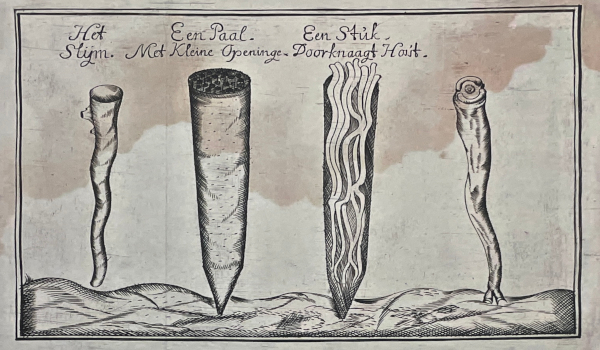 Het
Slijm.
Een Paal.
Met Kleine Openinge.
Een Stuk
Doorknaagt Hout.